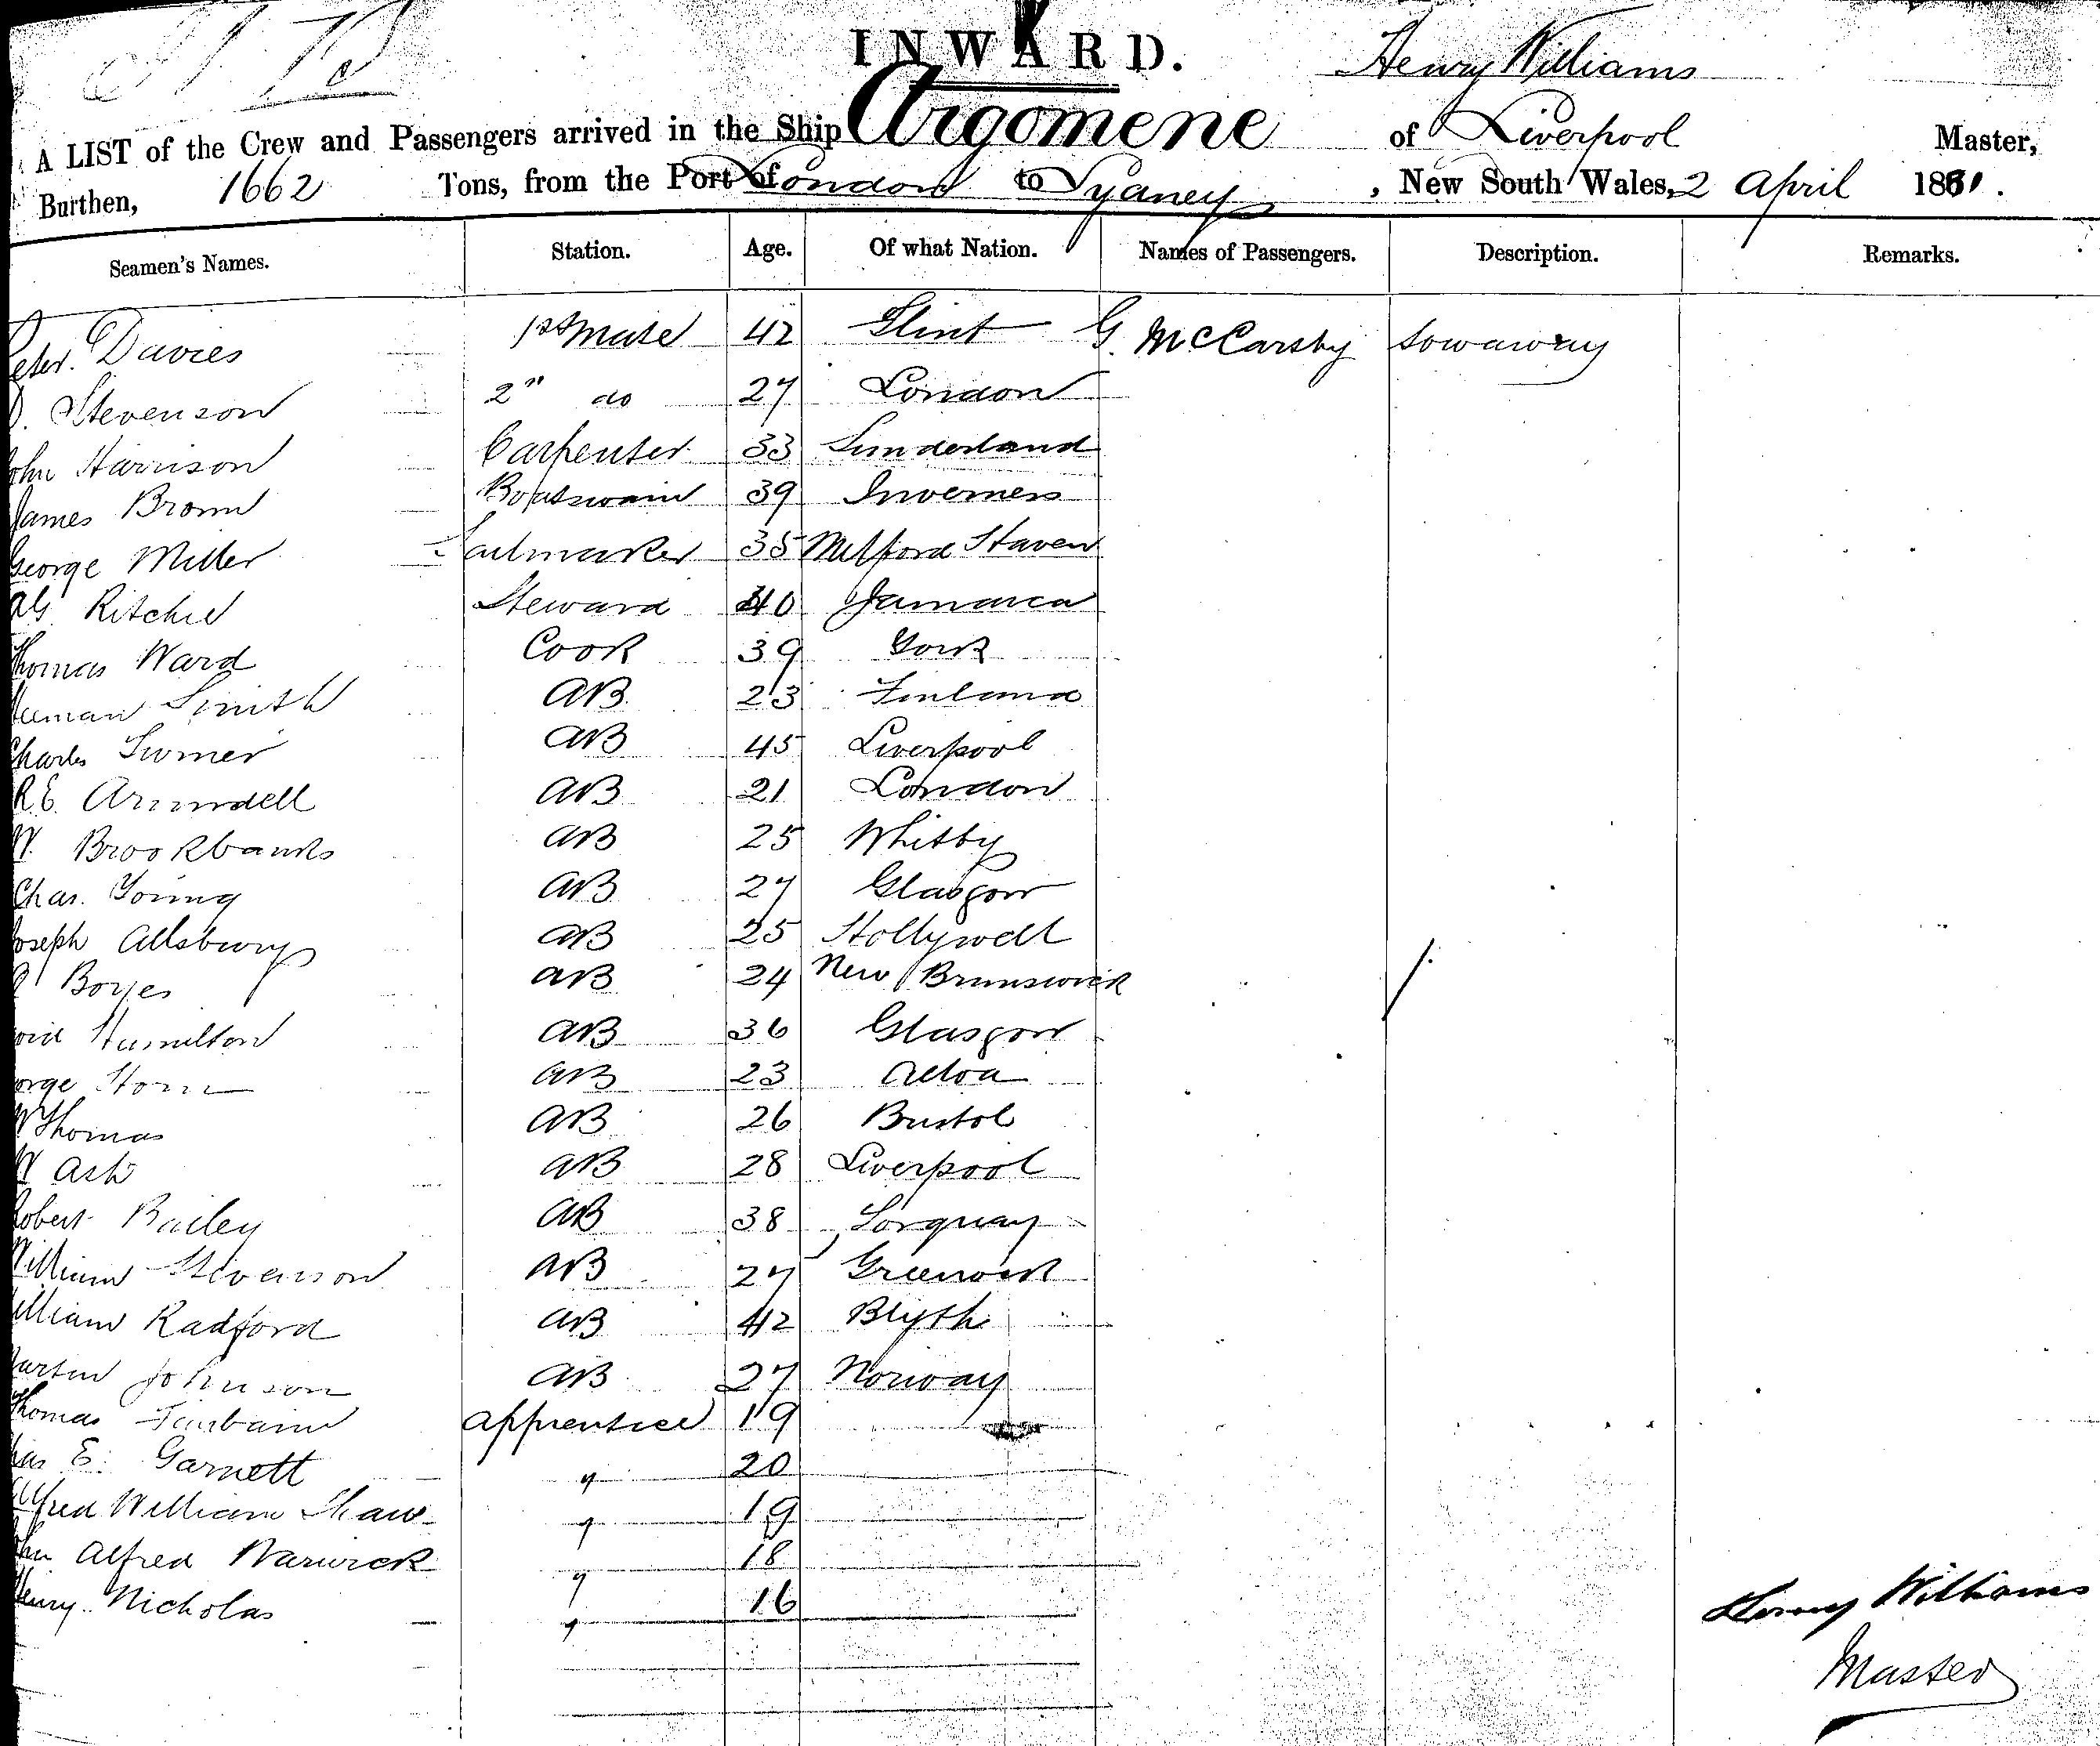 INWARD. Henry Williams
A LIST of the Crew and Passengers arrived in the Ship Argomene of Liverpool Master,
Burthen, 1662 Tons, from the Port of London to Sydney, New South Wales, 2 April 1881.
Seamen's Names. Station. Age. Of what Nation. Names of Passengers. Description. Remarks.
Peter Davies 1st Mate 42 Flint G. McCarshy Sowaway
D. Stevenson 2" do 27 London
John Harrison Carpenter 33 Sunderland
James Brown Boatswain 39 Inverness
George Miller Sailmaker 35 Milford Haven
Ritchie Steward 40 Jamaica
Thomas Ward Cook 39 York
Smith AB 23 Finland
Charles Turner AB 45 Liverpool
R.E. Arundell AB 21 London
W. Brookbanks AB 25 Whitby
Chas. Young AB 27 Glasgow
Joseph Allsbury AB 25 Hollywell
Boyes AB 24 New Brunswick
Hamilton AB 36 Glasgow
George Horn AB 23 Alloa
W Thomas AB 26 Bristol
W Ash AB 28 Liverpool
Robert Bailey AB 38 Torquay
William Stevenson AB 27 Greenock
William Radford AB 42 Blyth
Martin Johnson AB 27 Norway
Thomas Fairbairn Apprentice 19
Chas E. Garnett " 20
Alfred William Shaw " 19
John Alfred Warwick " 18
Henry Nicholas " 16
Henry Williams
Master